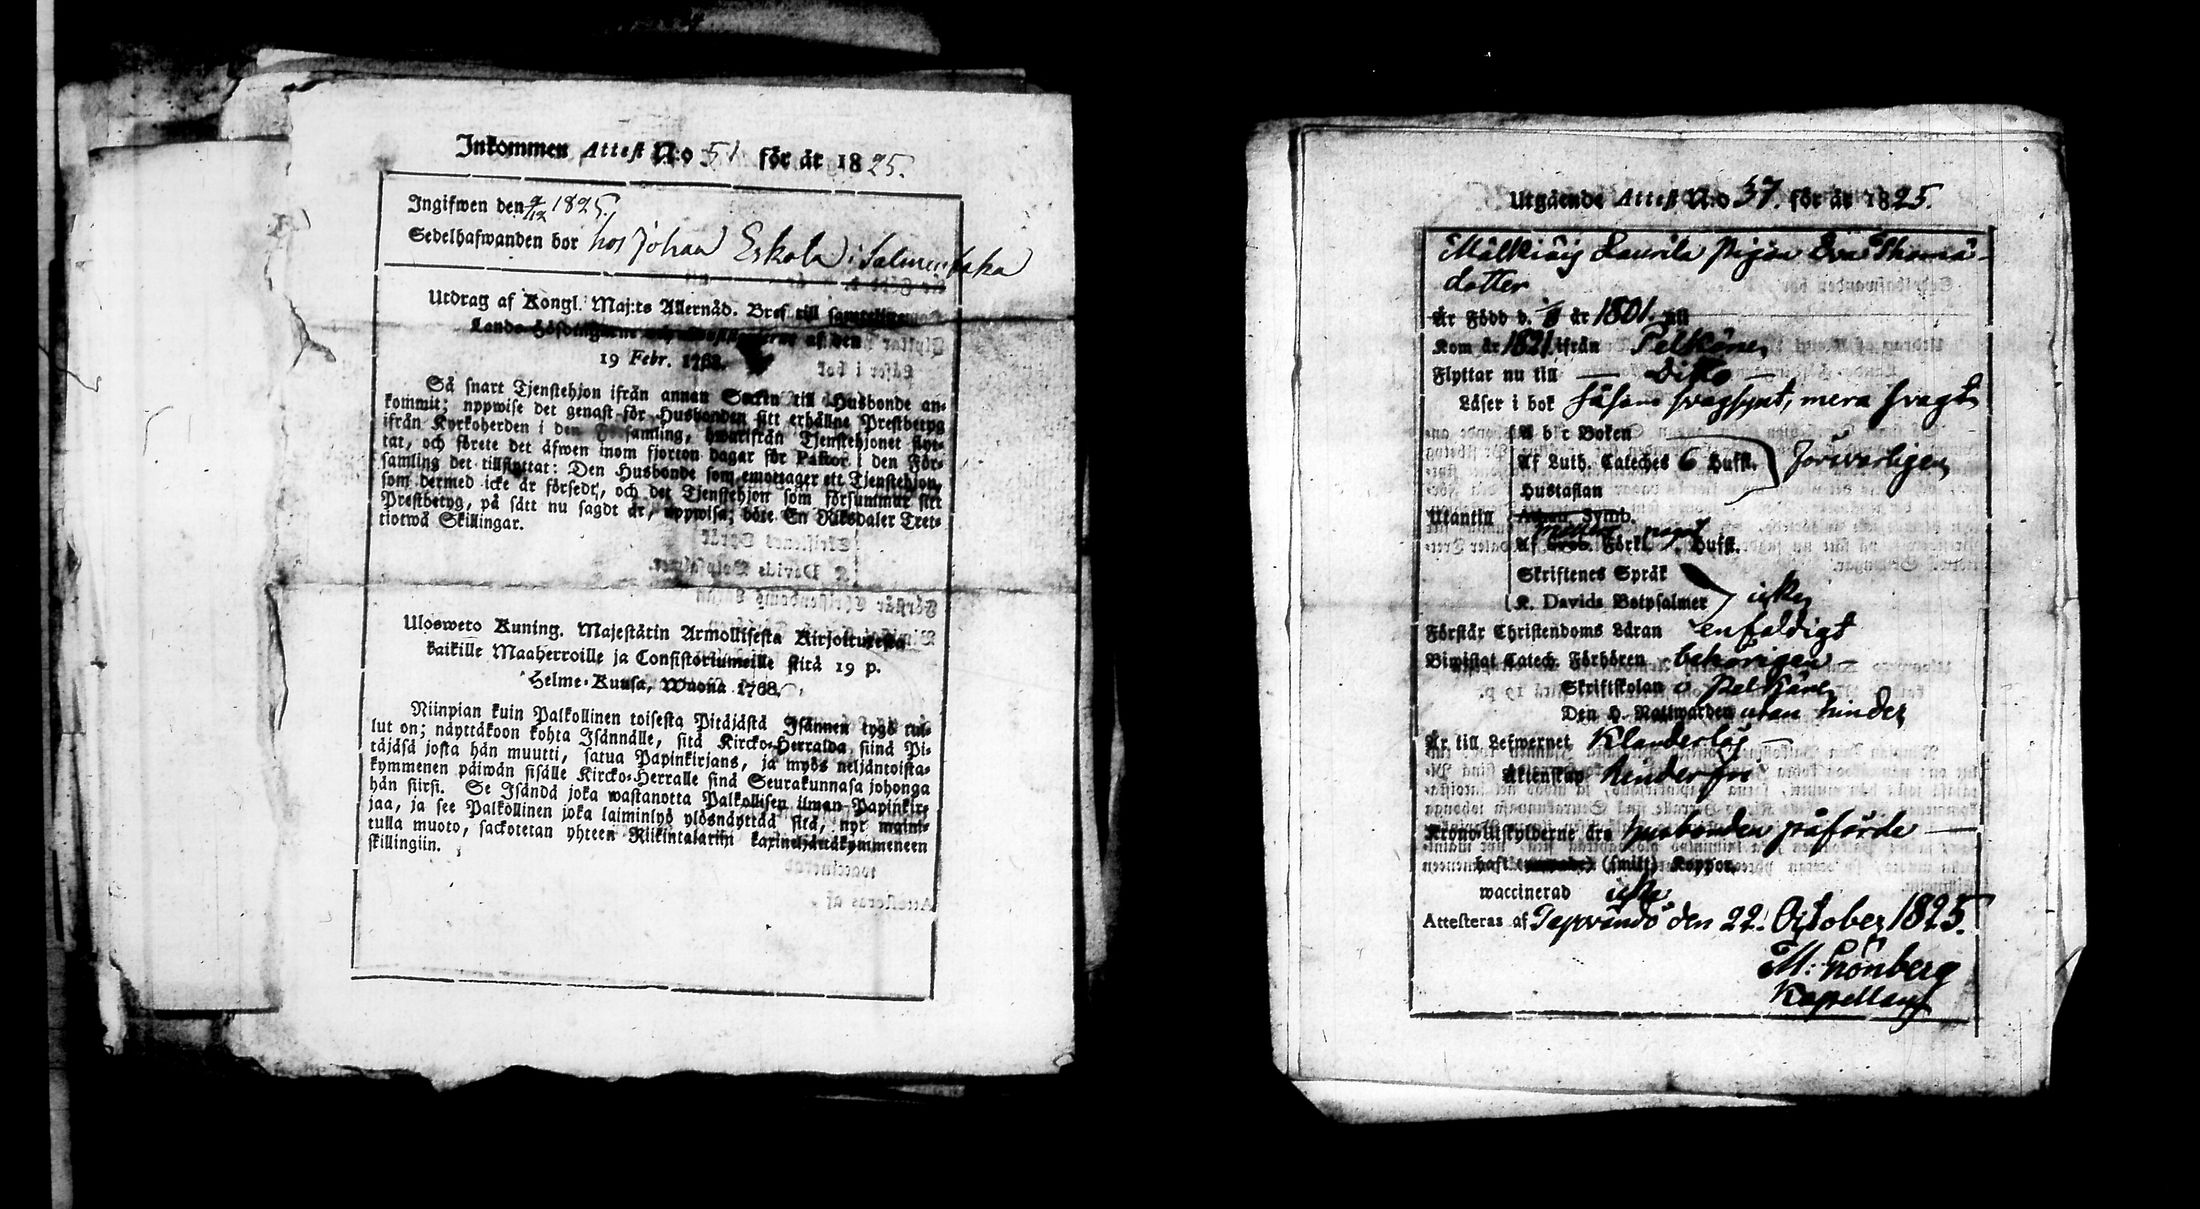 Inkommen Attest N:o 51 för år 1825.
Ingifwen den 9/12 1825.
Sedelhafwanden bor hos Johan Eskola i Salmentaka
Utdrag af Kongl. Maj:ts Allernåd. Bref till samtelige
Lands-Höfdingarne af den
19 Febr. 1768.
Så snart Tjenstehjon ifrån annan Socken till Husbonde an-
kommit; uppwise det genast för Husbonden sitt erhållne Prestbetyg
ifrån Kyrkoherden i den Församling, hwarifrån Tjenstehjonet flyt-
tat, och förete det äfwen inom fjorton dagar för Pastor i den För-
samling det tillflyttat: Den Husbonde som emottager ett Tjenstehjon,
som dermed icke är försedt, och det Tjenstehjon som försummar sitt
Prestbetyg, på sätt nu sagdt är, uppwisa; böte En Riksdaler Tret-
tiotwå Skillingar.
Ulosweto Kuning. Majestätin Armollisesta Kirjoituxesta
kaikille Maaherroille ja Consistoriumeille siitä 19 p.
Helme-Kuusa, Wuona 1768.
Niinpian kuin Palkollinen toisesta Pitäjästä Isännen tygö tul-
lut on; näyttäkoon kohta Isännälle, sitä Kircko-Herralda siinä Pi-
täjäsä josta hän muutti, saatua Papinkirjans, ja myös neljäntoista-
kymmenen päiwän sisälle Kircko-Herralle siinä Seurakunnasa johonga
hän siirsi. Se Isändä joka wastanotta Palkollisen ilman Papinkir-
jaa, ja see Palkollinen joka laiminlyö ylösnäyttää sitä, nyt maini-
tulla muoto, sackotetan yhteen Riikintalarihi kaxineljättäkymmeneen
skillingiin.
Utgående Attest N:o 37. för år 1825.
Mälkiäis Laurila Pigan Eva Thomä
dotter
År Född d. år 1801.
Kom år 1821 ifrån Pelkäne
Flyttar nu till Ditto
Läser i bok svagsynt, mera svagt
A b c Boken
Af Luth. Cateches 6 Hufst. försvarligen
Hustaflan
Utantill Athan. Symb.
Af Förkl. Hufst.
Skriftenes Språk
K. Davids Botpsalmer icke
Förstår Christendoms Läran enfaldigt
Biwistat Catech. Förhören behörigen
Skriftskolan i Pelkäne
Den H. Nattwarden utan hinder
År till Lefwernet Klanderlös
Äktenskap hinderfri
Kronoutskylderne äro husbonden påförde
haft (smitt) Koppor,
waccinerad icke
Attesteras af den 22. October 1825.
M: Lönberg
Kapellan